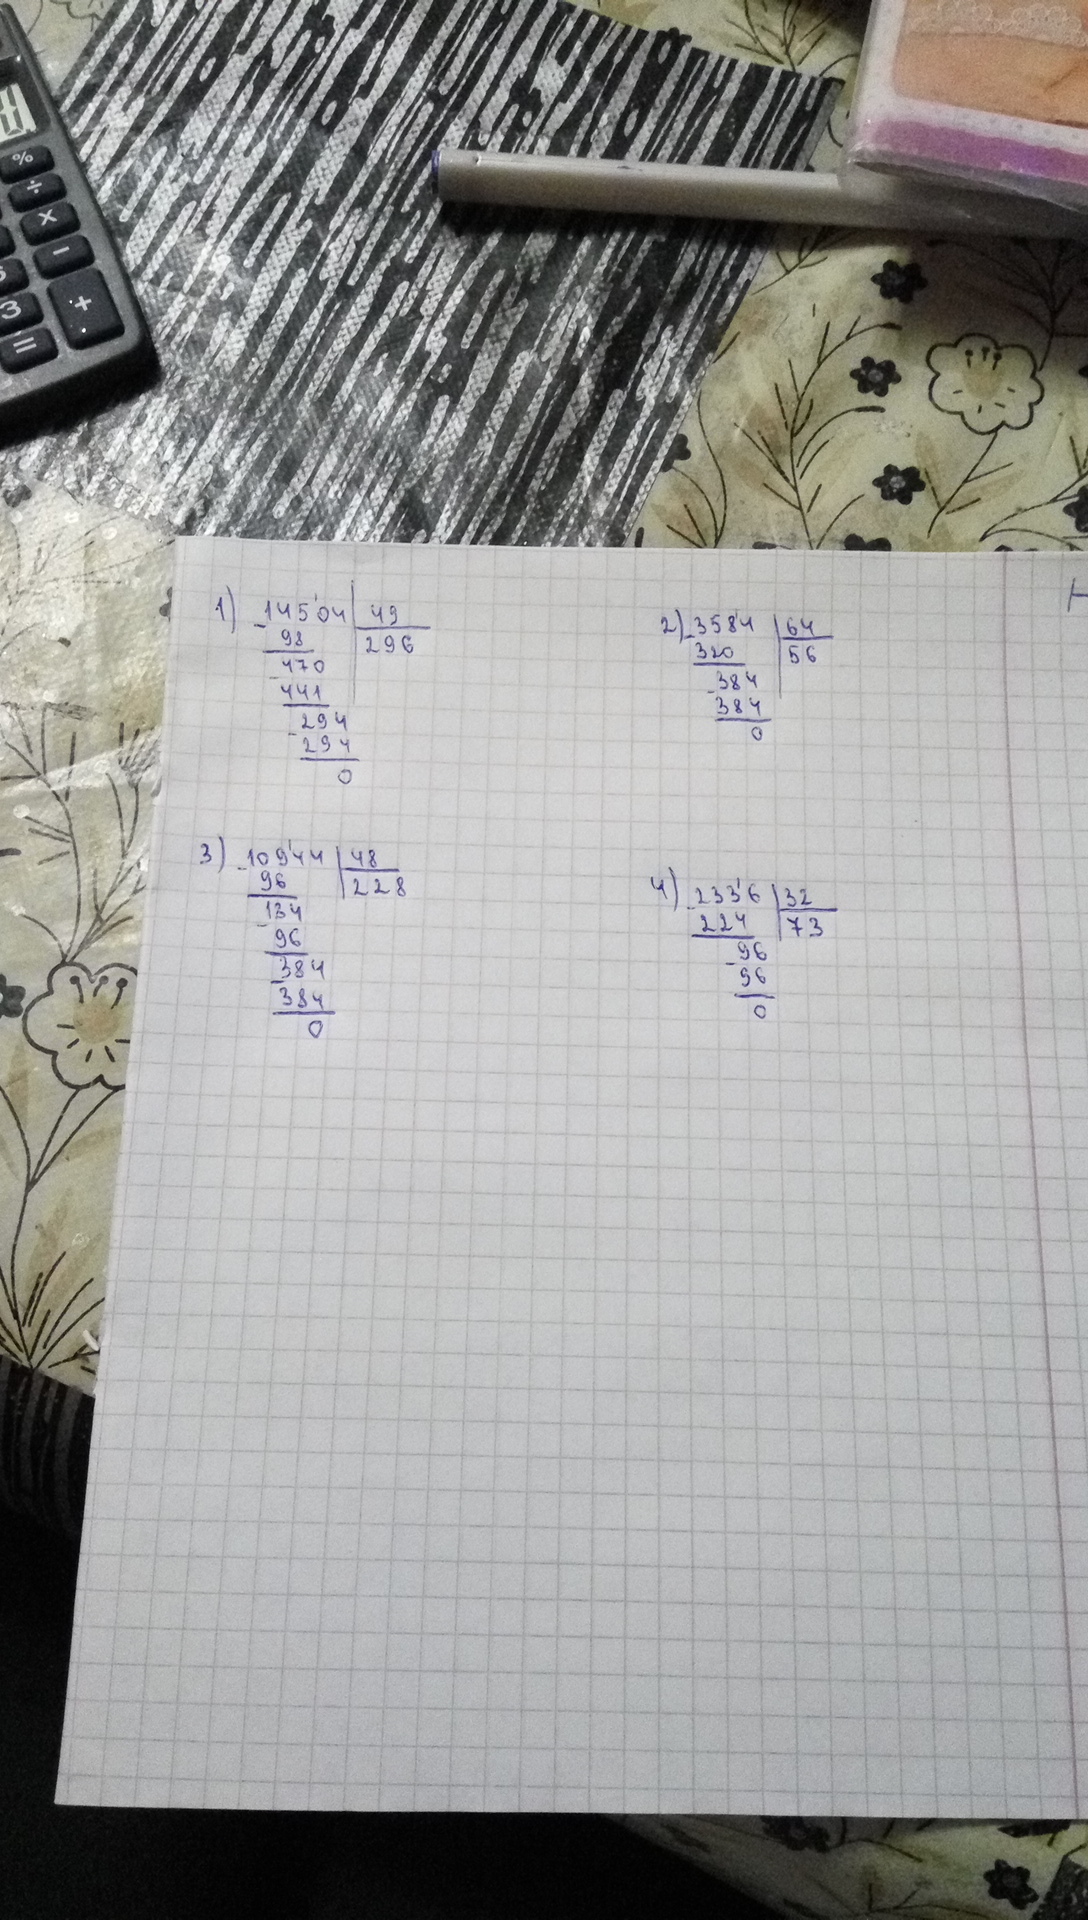 %
÷
×
−
3
+
=
1) -14504 | 49
98 | 296
-470
441
-294
294
0
2) -3584 | 64
320 | 56
-384
384
0
3) -10944 | 48
96 | 228
-134
96
-384
384
0
4) -2336 | 32
224 | 73
-96
96
0